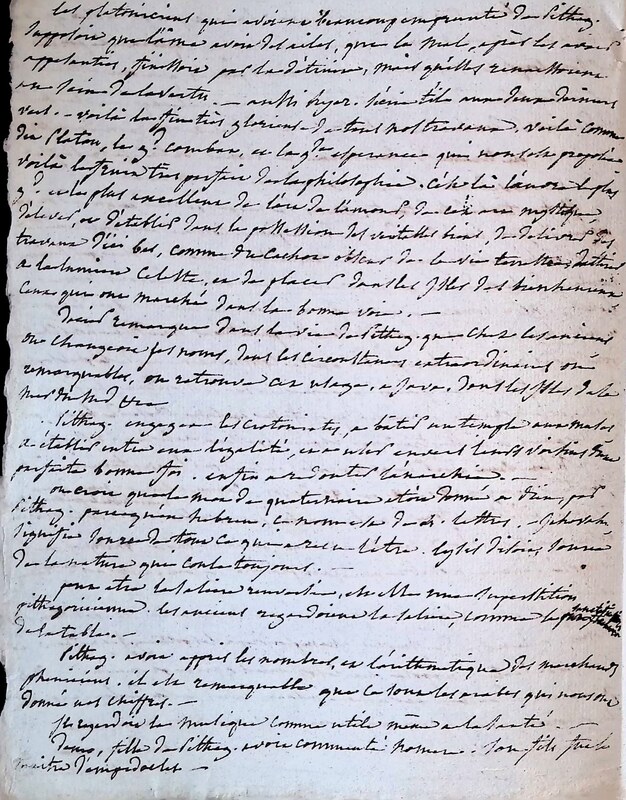 les platoniciens qui avoient beaucoup emprunté de Pithag.
supposoie que l'âme avoit des ailes, que le mal, après les avoir
appesanties, finissoit par les détruire, mais qu'elles renaissoient
au sein de la vertu. —
vers. — voilà la fin très glorieuse de tous nos travaux. voilà comme
dit Platon, le gd. combat, et la gde. esperance qui nous est proposée
voilà le fruit très parfait de la philosophie. c'est là l'œuvre le plus
gd. et le plus excellent de l'art de l'amour, de cet art mystique
d'élever, et d'établir dans la possession des veritables biens, de délivrer des
travaux d'ici bas, comme du cachot obscur de la vie terrestre, d'attirer
a la lumiere celeste, et de placer dans les Isles des bienheureux
ceux qui ont marché dans la bonne voie. —
Dacier remarque dans la vie de Pithag. que chez les anciens
on changeoit ses noms, dans les circonstances extraordinaires ou
remarquables, on retrouve cet usage, a Java, dans les Isles de la
mer du sud &ca
Pithag. engagea les crotoniates, a bâtir un temple aux muses
a établir entre eux l'égalité, et a user envers leurs voisins d'une
parfaite bonne foi. enfin a redouter l'anarchie. —
on croit que le nom de quaternaire etoit donné a Dieu, par
Pithag. parcequ'en hebreu, ce nom est de 4. lettres. — Jehovah,
signifie source de tout ce qui a reçu l'être. Lysis disoit, source
de la nature qui coule toujours. —
peut etre la saliere renversée, est elle une superstition
pithagoricienne. les anciens regardoient la saliere, comme la
de la table. —
Pithag. avoit appris les nombres, et l'arithmetique des marchands
pheniciens. et il est remarquable que ce sont les arabes qui nous ont
donné nos chiffres. —
il regardoit la musique comme utile même a la santé. —
Damo, fille de Pithag. avoit commenté homere. son fils fut le
maitre d'empedocles —